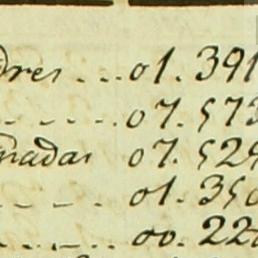 dres ... 01. 391
... 07. 573
nadas 07. 529
- - - 01. 350
- - - 00. 220